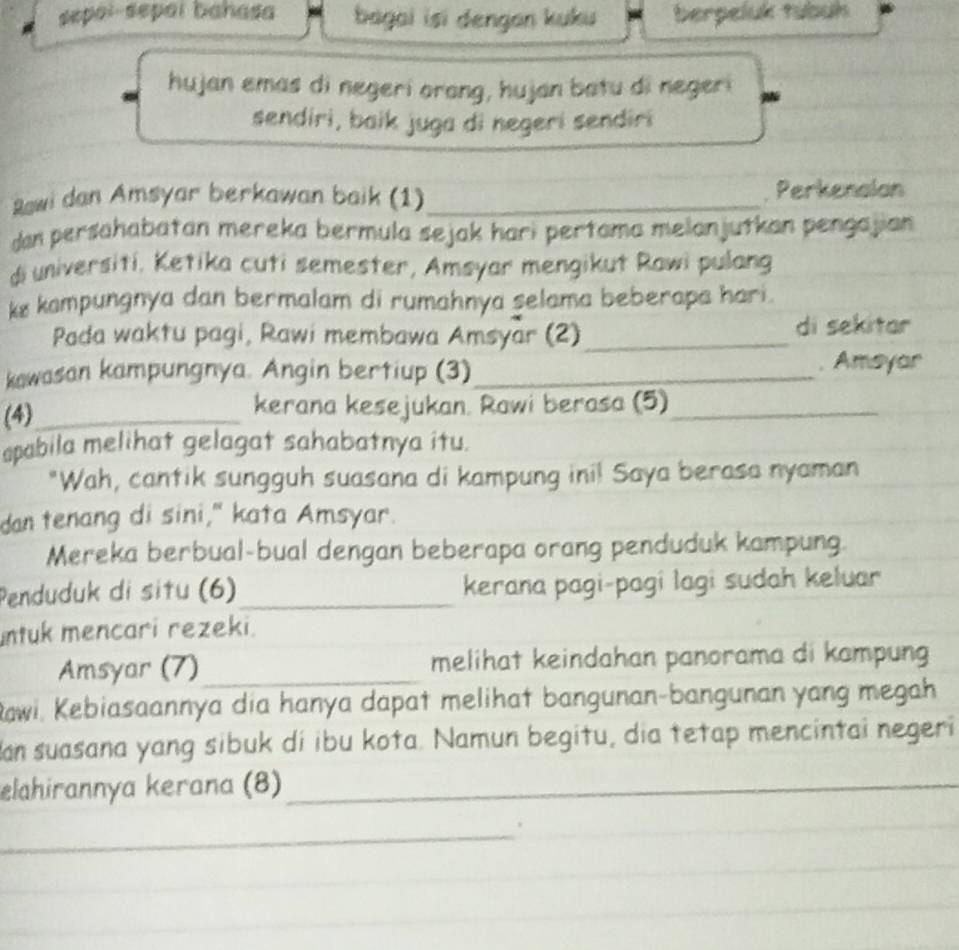 sepoi-sepoi bahasa
bagai isi dengan kuku
berpeluk tubuh
hujan emas di negeri orang, hujan batu di negeri
sendiri, baik juga di negeri sendiri
Rawi dan Amsyar berkawan baik (1)_____. Perkenalan
dan persahabatan mereka bermula sejak hari pertama melanjutkan pengajian
di universiti. Ketika cuti semester, Amsyar mengikut Rawi pulang
ke kampungnya dan bermalam di rumahnya selama beberapa hari.
Pada waktu pagi, Rawi membawa Amsyar (2)_____ di sekitar
kawasan kampungnya. Angin bertiup (3)_____. Amsyar
(4)_____ kerana kesejukan. Rawi berasa (5)_____
apabila melihat gelagat sahabatnya itu.
"Wah, cantik sungguh suasana di kampung ini! Saya berasa nyaman
dan tenang di sini," kata Amsyar.
Mereka berbual-bual dengan beberapa orang penduduk kampung.
Penduduk di situ (6)_____ kerana pagi-pagi lagi sudah keluar
untuk mencari rezeki.
Amsyar (7)_____ melihat keindahan panorama di kampung
Rawi. Kebiasaannya dia hanya dapat melihat bangunan-bangunan yang megah
dan suasana yang sibuk di ibu kota. Namun begitu, dia tetap mencintai negeri
elahirannya kerana (8)_____
_____.